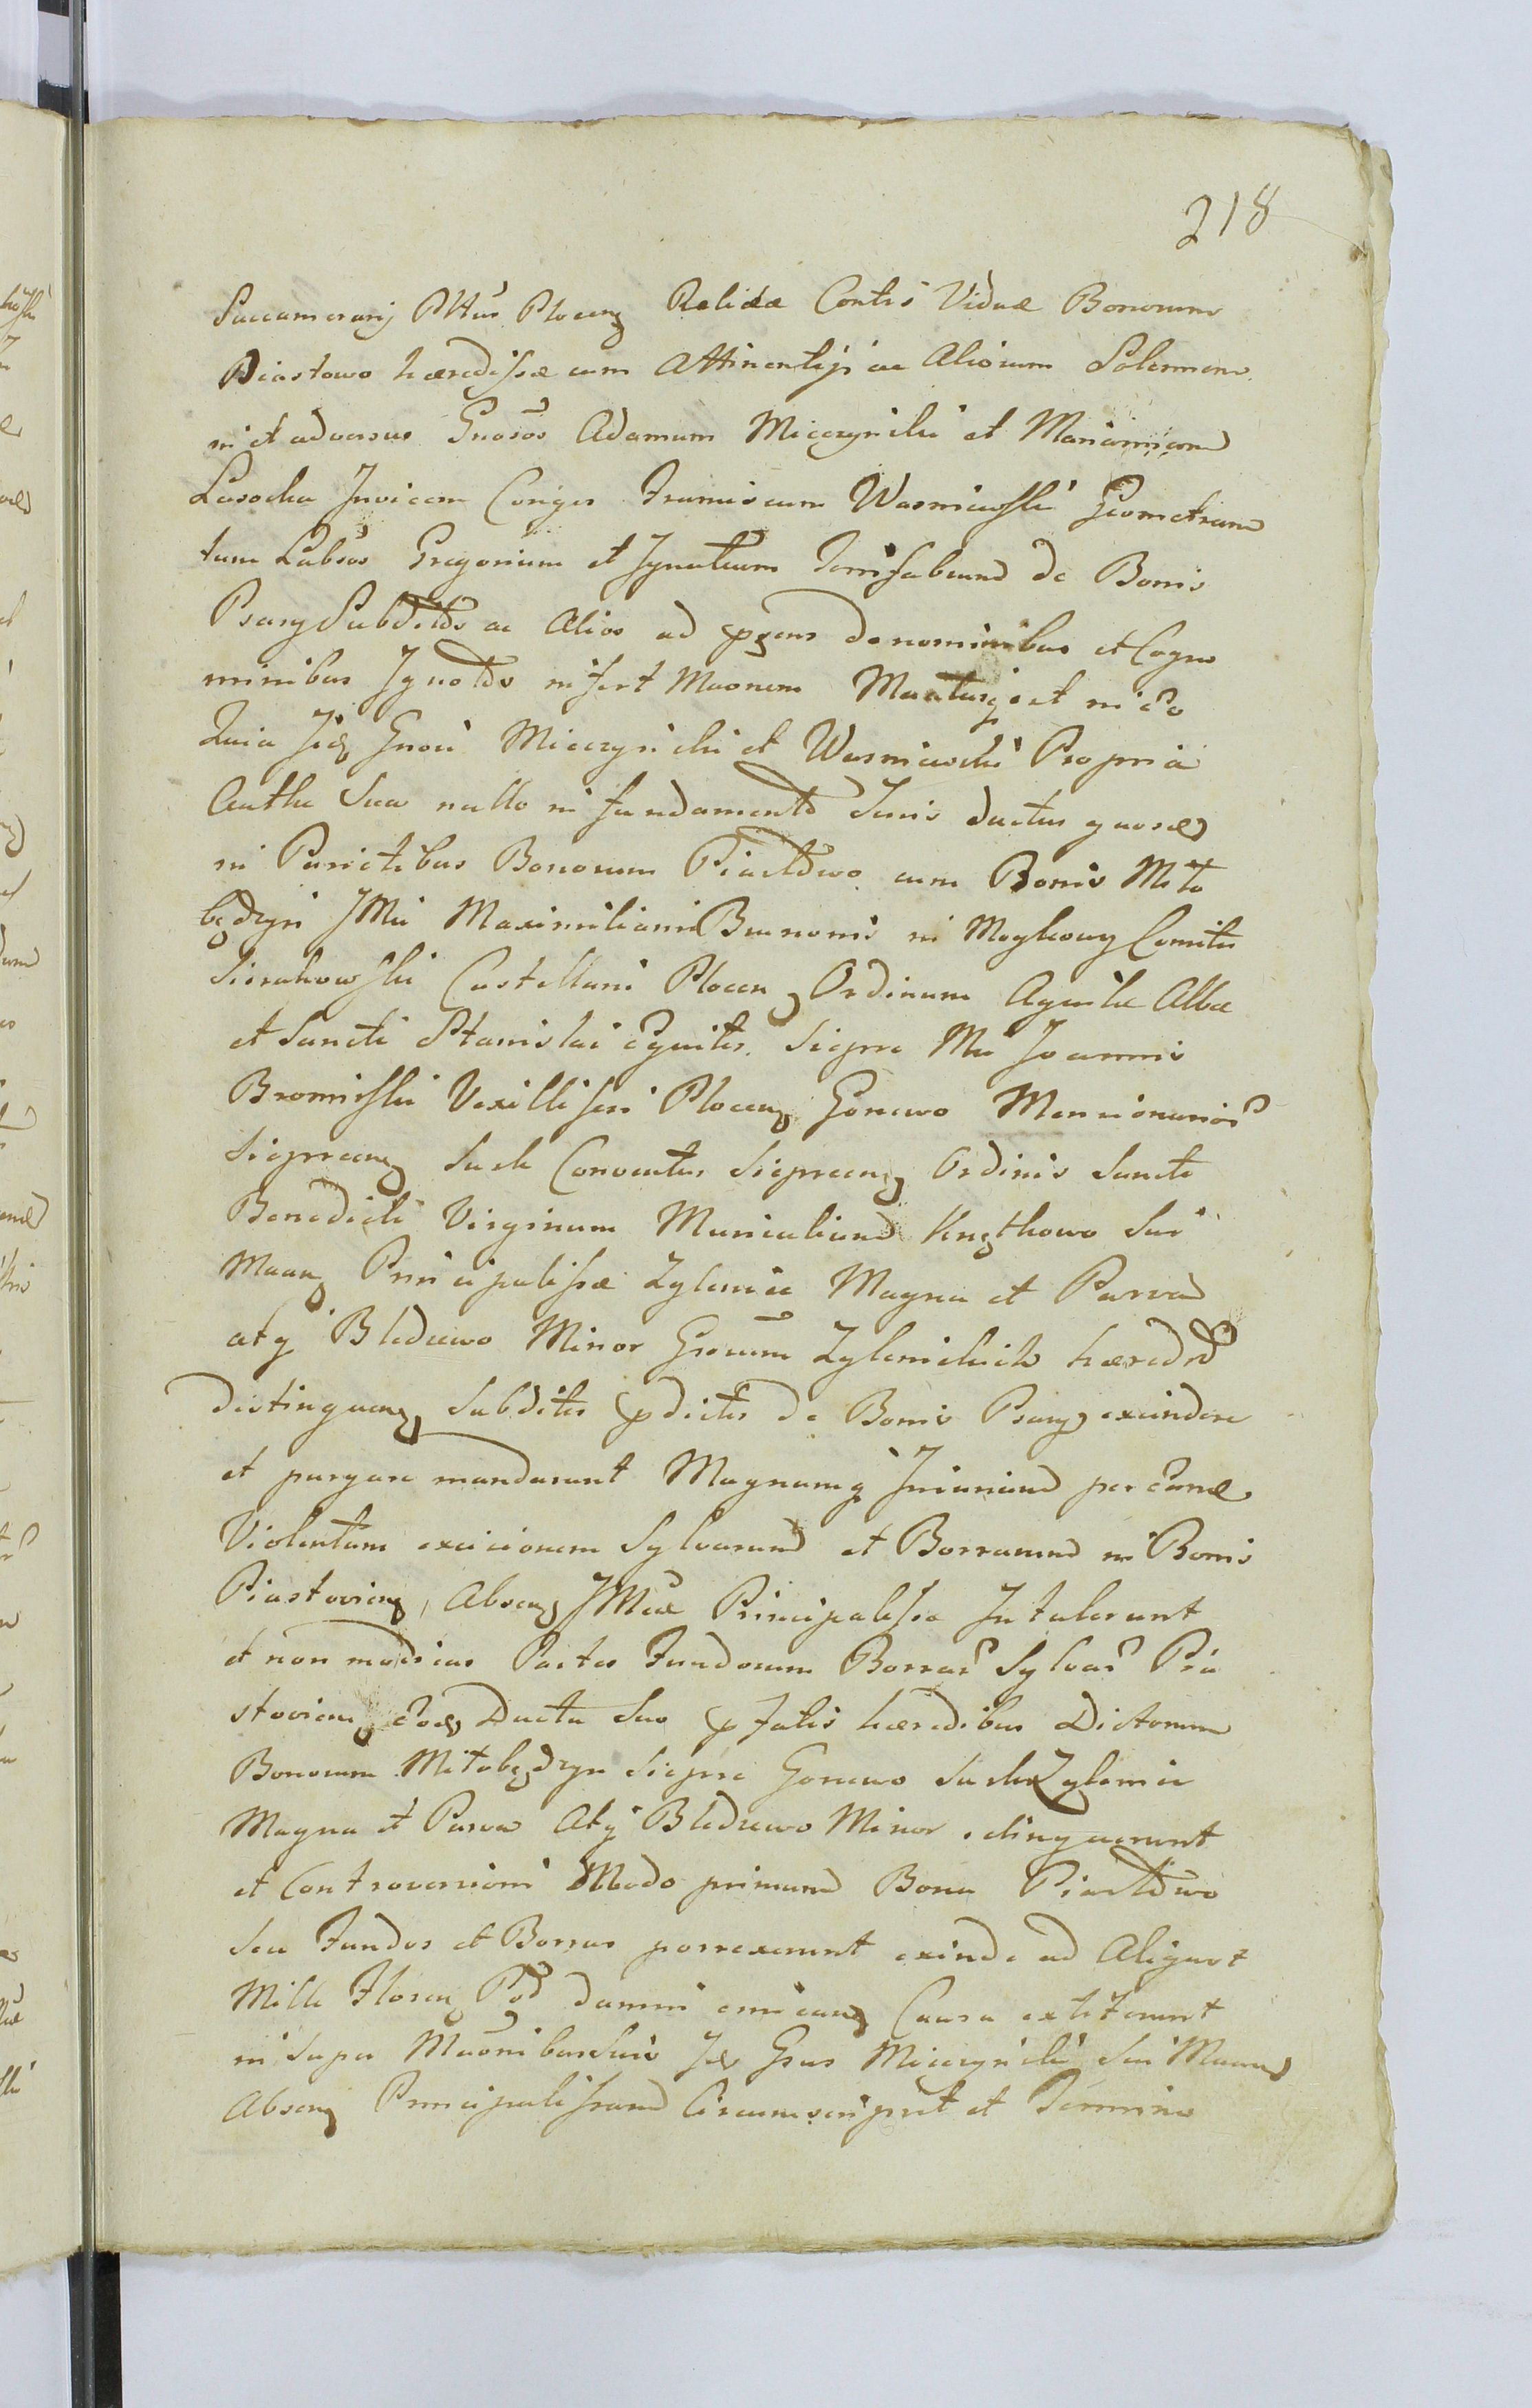 218
Succamerarij Pttus Plocen Relictæ Contis Viduæ Bonorum
Piastowo hæredissæ cum Attinentijs ac Aliorum Solennem
in et adversus Gnosos Adamum Miczyński et Mariannam
Lasocka Invicem Coniges Franciscum Wasniewski Geometram
tum Labsos Gregorium et Ignatium de Bonis
Psary Subditos ac Alios ad præns de nominibus et Cogno
minibus Ignotos infert Maonem Manlusj et in eo
Quia Jidem Gnosi Miczyński et Wasniewski Propria
Autthe Sua nullo in fundamento Juris ductus quosdem
in Parietibus Bonorum Piastowo cum Bonis Mito
będzyn JMci Maximiliani Brunonis in Moykowy Comitis
Sierakowski Castellani Plocen Ordinum Aquilæ Albæ
et Sancti Stanislai Equitis. Sieprc Mci Joannis
Bromirski Vexilliferi Plocen Gorzewo Mansionarior
Sieprcen Susk Conventus Sieprcen Ordinis Sancti
Benedicti Virginum Monialium Kręćkowo Sui
Maan Principalissæ Zglenice Magna et Parva
atq Bledzewo Minor Grorum Zglenickich hæredum
distinguen Subditis prædictis de Bonis Psary excindere
et purgare mandarunt Magnamq Injuriam per eam
Violentam excicionem Sylvarum et Borrarum in Bonis
Piastovien, Absen JMcæ Principalissæ Intulerunt
et non modicas Partes Fundorum Borrar Sylvar Pia
stovien eoq Ductu Suo præfatis hæredibus Dictorum
Bonorum Mitobędzyn Sieprc Gorzewo Susk Zglenice
Magna et Parva Atq Bledzewo Minor relinquerunt
et Controversioni Modo primum Bona Piastowo
Seu Fundos et Borras porrexerunt exinde ad Aliquot
Mille Floren Pol damni emican Causa extiterunt
in super Maonibus Suis Jdem Gsus Miczyński Sui Maan
Absen Principalissam Circumscripsit et Termino